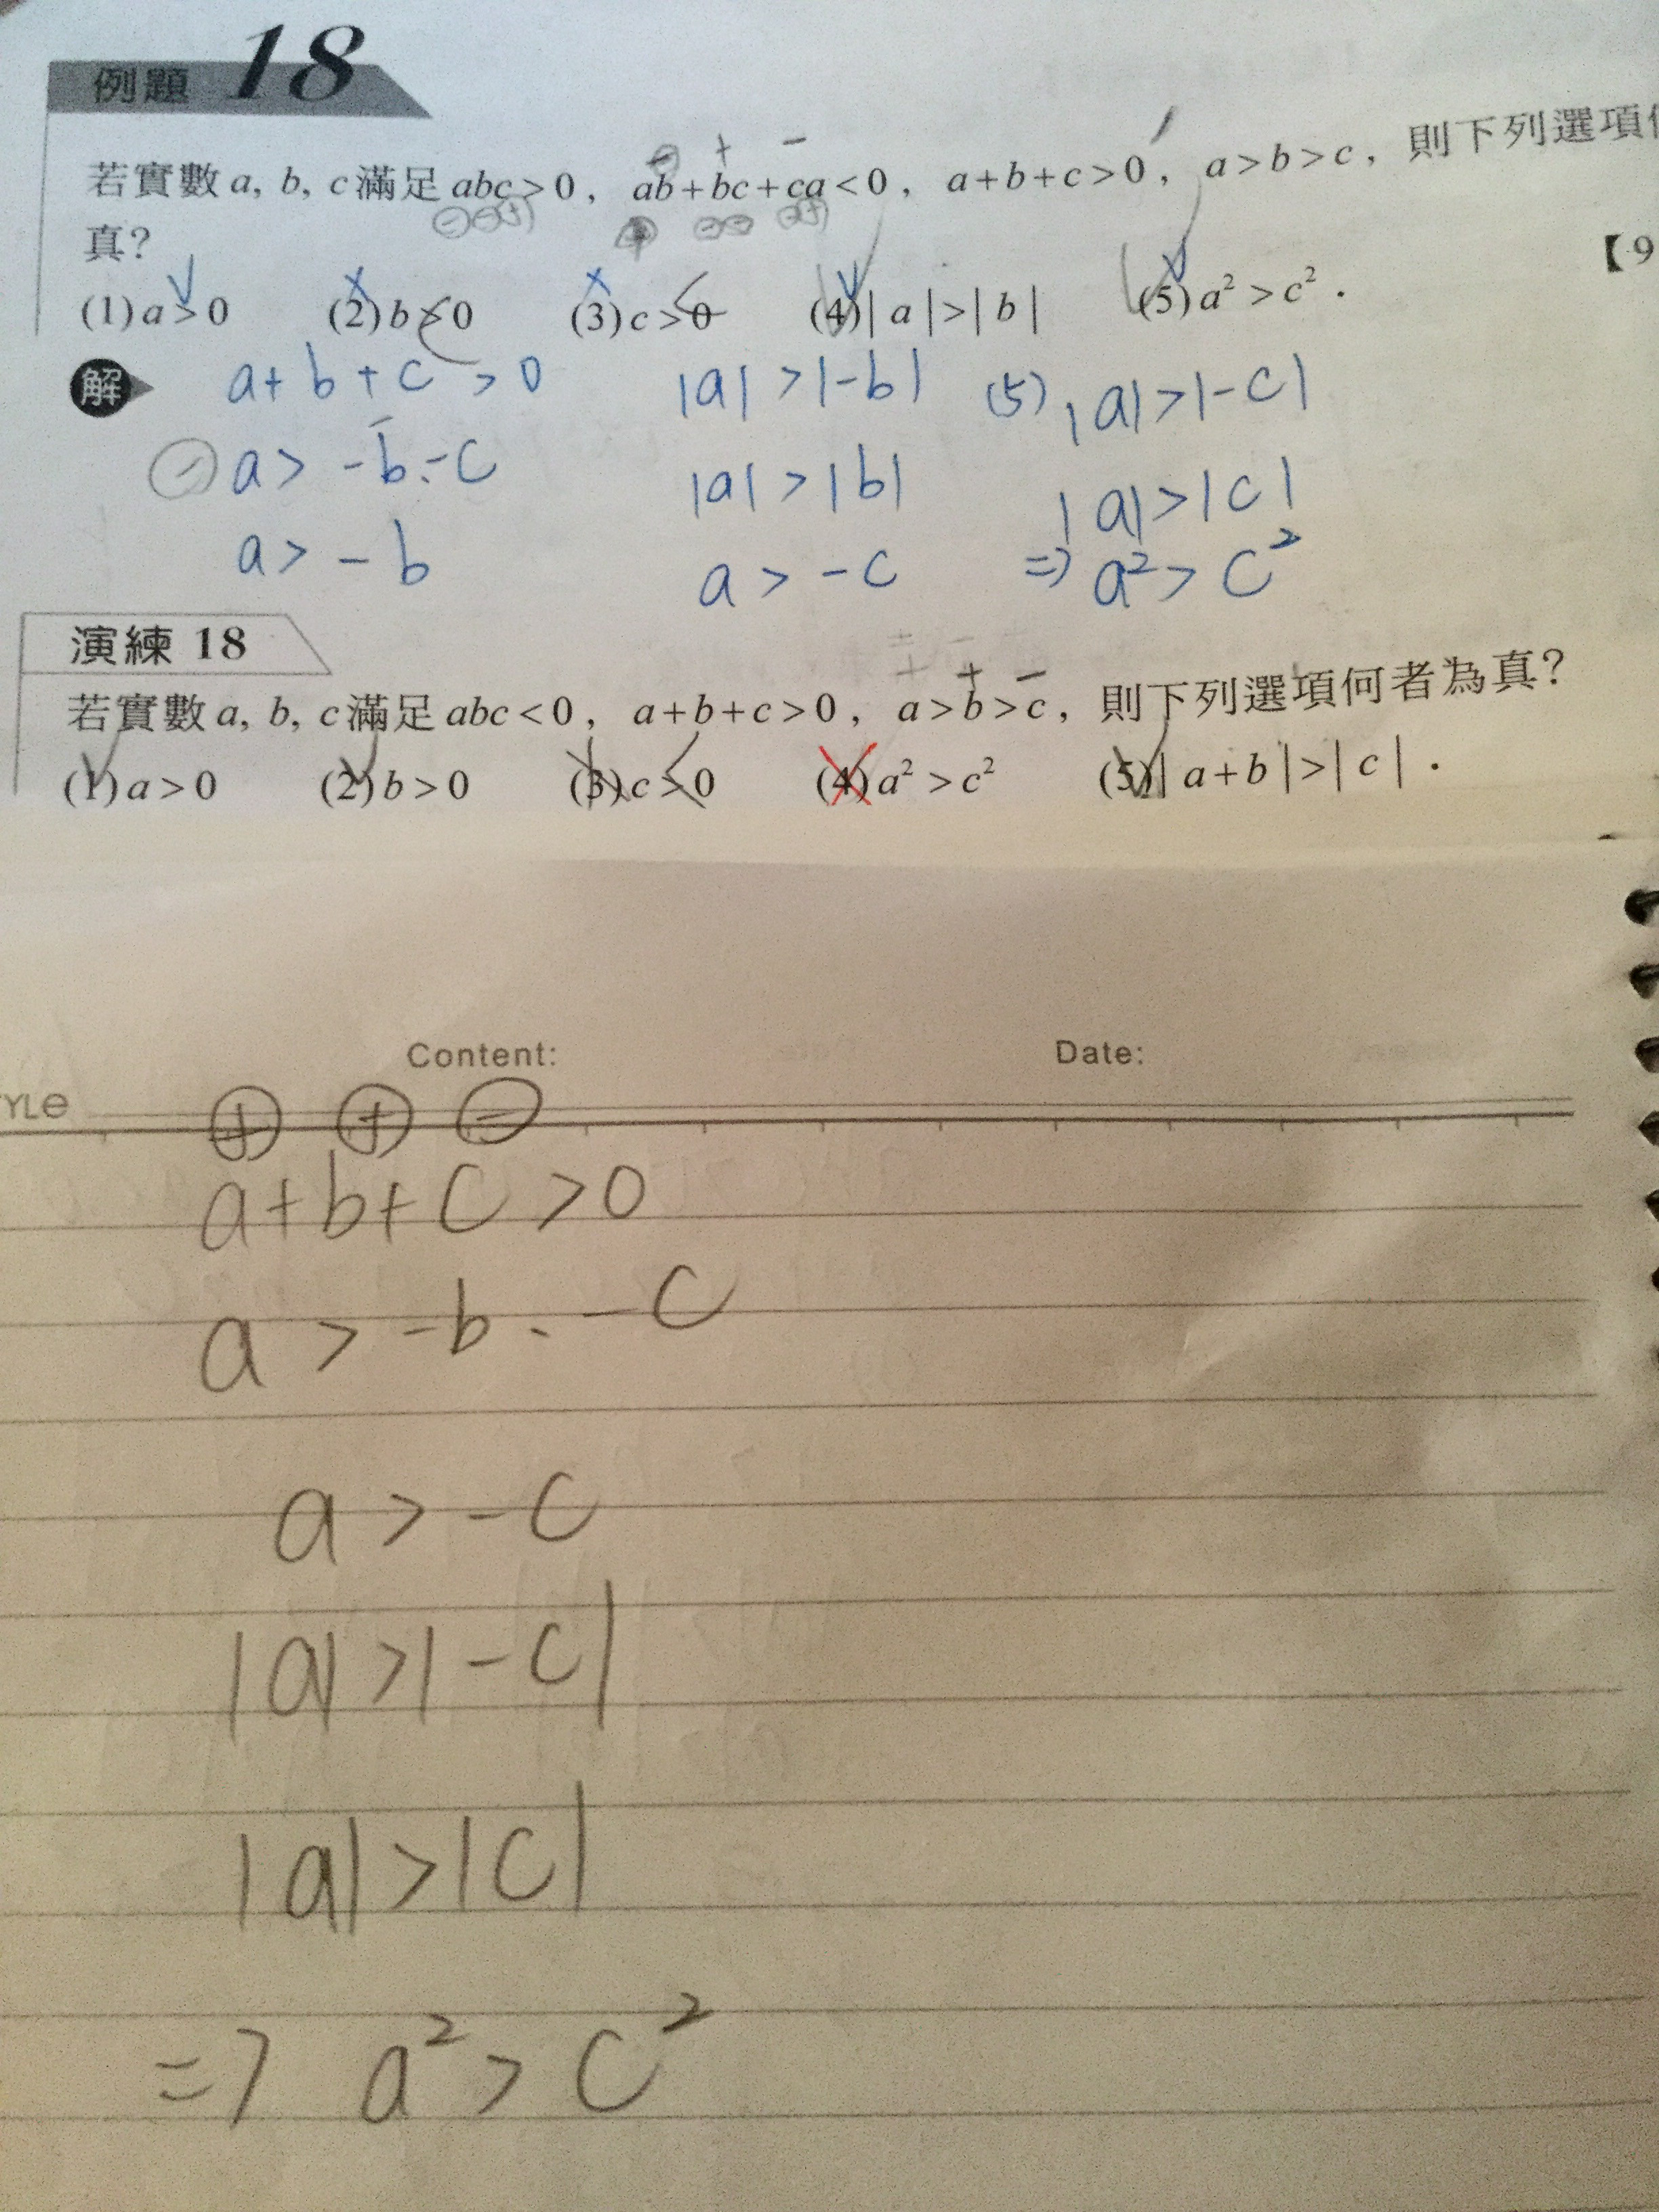 例題 18
若實數 a, b, c 滿足 abc > 0, ab + bc + ca < 0, a + b + c > 0, a > b > c, 則下列選項
真?
【9
(1) a > 0 (2) b > 0 (3) c > 0 (4) | a | > | b | (5) a² > c².
解
a + b + c > 0 |a| > |-b| (5) |a| > |-c|
a > -b - c |a| > |b| |a| > |c|
a > -b a > -c => a² > c²
演練 18
若實數 a, b, c 滿足 abc < 0, a + b + c > 0, a > b > c, 則下列選項何者為真?
(1) a > 0 (2) b > 0 (3) c < 0 (4) a² > c² (5) | a + b | > | c |.
Content: Date:
YLe
+ + -
a + b + c > 0
a > -b - c
a > -c
|a| > |-c|
|a| > |c|
=> a² > c²